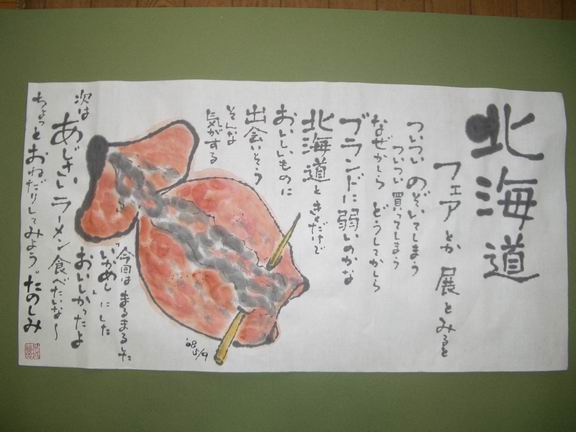 北海道
フェアとか 展とみると
ついつい のぞいてしまう
ついつい 買ってしまう
なぜかしら どうしてかしら
ブランドに弱いのかな
北海道ときくだけで
おいしいものに
出会いそう
そんな
気がする
今回は まるまるした
"いかめし"にした
おいしかったよ
次は あじさいラーメン食べたいな〜
ちょっとおねだりしてみよう"たのしみ
'08 5/9